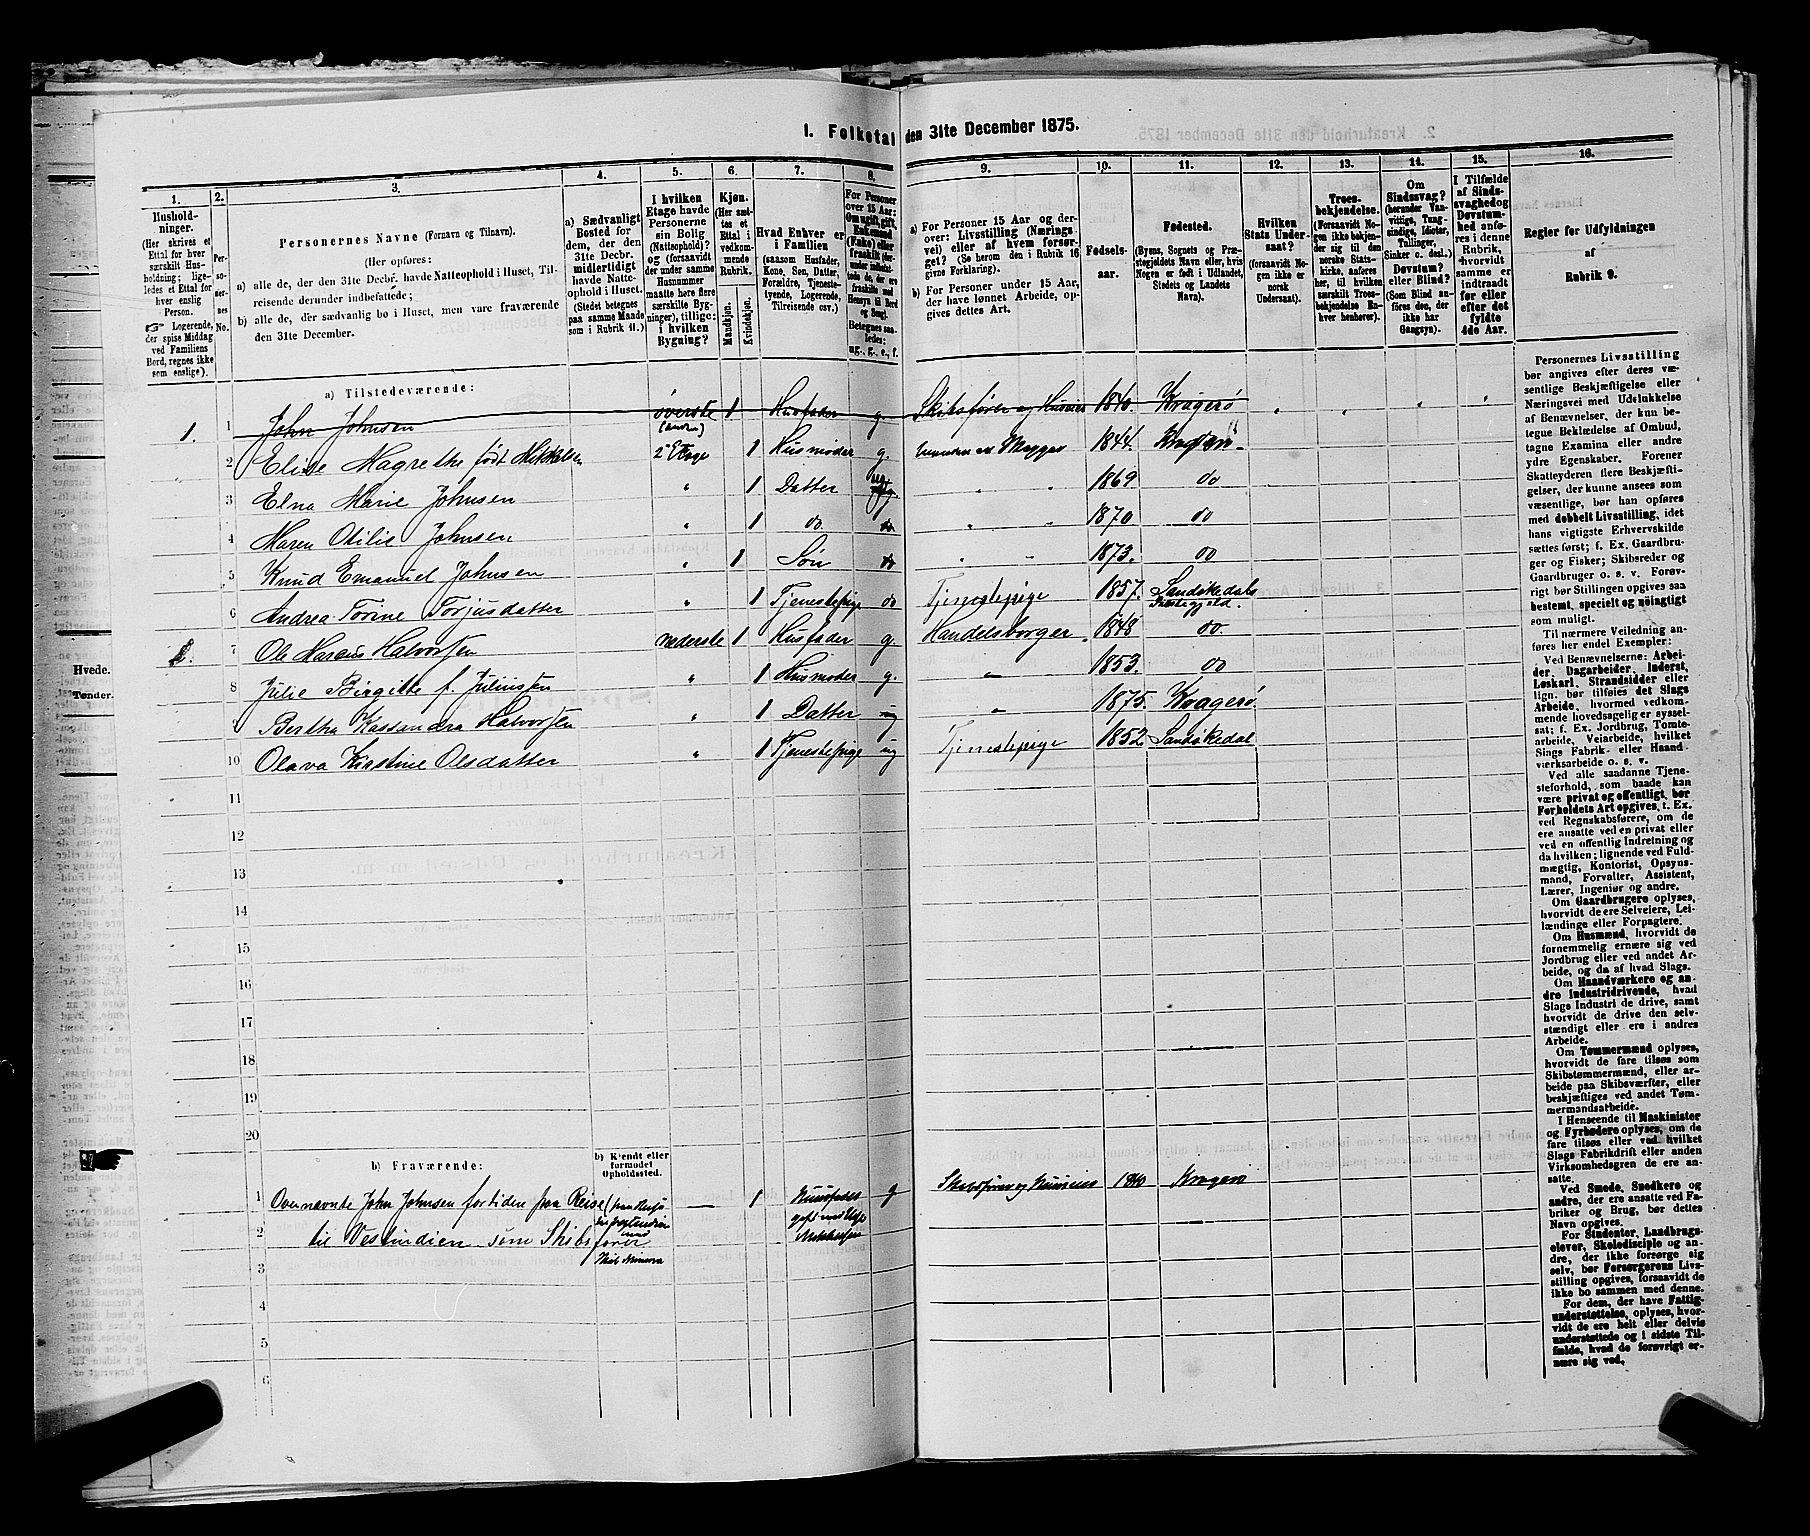 I. Folketal den 31te December 1875.
1.
Hushold-
ninger.
(Her skrives et
Ettal for hver
særskilt Hus-
holdning; lige-
ledes et Ettal for
hver enslig
Person.
☞ Logerende,
der spise Middag
ved Familiens
Bord, regnes ikke
som enslige).
2.
Per-
so-
ner-
nes
No.
3.
Personernes Navne (Fornavn og Tilnavn).
(Her opføres:
a) alle de, der den 31te Decbr. havde Natteophold i Huset, Til-
reisende derunder indbefattede;
b) alle de, der sædvanlig bo i Huset, men vare fraværende
den 31te December.
4.
a) Sædvanligt
Bosted for
dem, der den
31te Decbr.
midlertidigt
havde Natte-
ophold i Huset.
(Stedet betegnes
paa samme Maade
som i Rubrik 11.)
5.
I hvilken
Etage havde
Personerne
sin Bolig
(Natteophold)?
og (forsaavidt
der under samme
Husnummer
maatte høre flere
særskilte Byg-
ninger), tillige:
i hvilken
Bygning?
6.
Kjøn.
(Her sæt-
tes et
Ettal i
vedkom-
mende
Rubrik.
Mandkjøn.
Kvindekjøn.
7.
Hvad Enhver er
i Familien
(saasom Husfader,
Kone, Søn, Datter,
Forældre, Tjeneste-
tyende, Logerende,
Tilreisende osv.)
8.
For Personer
over 15 Aar:
Om ugift, gift,
Enkemand
(Enke) eller
fraskilt (der-
under indbefat-
tede de, der ere
fraskilte med
Hensyn til Bord
og Seng).
Betegnes saa-
ledes:
ug., g., e., f.
9.
a) For Personer 15 Aar og der-
over: Livsstilling (Nærings-
vei) eller af hvem forsør-
get? (Se herom den i Rubrik 16
givne Forklaring).
b) For Personer under 15 Aar,
der have lønnet Arbeide, op-
gives dettes Art.
10.
Fødsels-
aar.
11.
Fødested.
(Byens, Sognets og Præ-
stegjeldets Navn eller, hvis
Nogen er født i Udlandet,
Stedets og Landets
Navn).
12.
Hvilken
Stats Under-
saat?
(forsaavidt No-
gen ikke er
norsk
Undersaat).
13.
Troes-
bekjendelse.
(Forsaavidt No-
gen ikke bekjen-
der sig til den
norske Stats-
kirke, anføres
her, til hvilken
særskilt Troes-
bekjendelse En-
hver henhører).
14.
Om
Sindssvag?
(herunder Van-
vittige, Tung-
sindige, Idioter,
Tullinger,
Sinker o. desl.)
Døvstum?
eller Blind?
(Som Blind an-
føres den, der
ikke har
Gangsyn).
15.
I Tilfælde
af Sinds-
svaghed og
Døvstum-
hed anfø-
res i denne
Rubrik,
hvorvidt
samme er
indtraadt
før eller
efter det
fyldte
4de Aar.
16.
Regler for Udfyldningen
af
Rubrik 9.
a) Tilstedeværende:
1. 1 John Johnsen øverste 1 Husfader g. Skibsfører og Huseier 1840. Kragerø
(anden)
2 Elise Magrethe født Mikkelsen 2 Etage 1 Husmoder g. 1844. Kragerø
3 Elna Marie Johnsen " 1 Datter " " 1869 do
4 Maren Otilie Johnsen " 1 do. do " " 1870 do
5 Knud Emanuel Johnsen " 1 Søn do " " 1873. do
6 Andrea Torine Torjusdatter " 1 Tjenestepige do Tjenestepige 1857. Sandøkedals
Præstegjeld.
2. 7 Ole Marcus Halvorsen nederste 1 Husfader g. Handelsborger 1848 do.
8 Julie Birgitte f. Juliussen " 1 Husmoder g. " 1853. do
9 Bertha Kassandra Halvorsen " 1 Datter ug " 1875. Kragerø
10 Olava Kirstine Olsdatter " 1 Tjenestepige ug Tjenestepige 1852. Sandøkedal
11
12
13
14
15
16
17
18
19
20
b) Fraværende:
b) Kjendt eller
formodet
Opholdssted.
1 Overnævnte John Johnsen for tiden paa Reise 1 Huusfader g Skibsfører og Huuseier 1840 Kragerø
gift med Elise
2 til Vestindien som Skibsfører Mikkelsen
Skib Minerva
3
4
5
6
Personernes Livsstilling
bør angives efter deres væ-
sentlige Beskjæftigelse eller
Næringsvei med Udelukkelse
af Benævnelser, der kun be-
tegne Beklædelse af Ombud,
tagne Examina eller andre
ydre Egenskaber. Forener
Skatteyderen flere Beskjæfti-
gelser, der kunne ansees som
væsentlige, bør han opføres
med dobbelt Livsstilling, idet
hans vigtigste Erhvervskilde
sættes først; f. Ex. Gaardbru-
ger og Fisker; Skibsreder og
Gaardbruger o. s. v. Forøv-
rigt bør Stillingen opgives saa
bestemt, specielt og nøiagtigt
som muligt.
Til nærmere Veiledning an-
føres her endel Exempler:
Ved Benævnelserne: Arbei-
der, Dagarbeider, Inderst,
Løskarl, Strandsidder eller
lign. bør tilføies det Slags
Arbeide, hvormed vedkom-
mende hovedsagelig er syssel-
sat; f. Ex. Jordbrug, Tomte-
arbeide, Veiarbeide, hvilket
Slags Fabrik- eller Haand-
værksarbeide o. s. v.
Ved alle saadanne Tjene-
steforhold, som baade kan
være privat og offentligt, bør
Forholdets Art opgives, t. Ex.
ved Regnskabsførere, om de
ere ansatte ved en privat eller
ved en offentlig Indretning og
da hvilken; lignende ved Fuld-
mægtig, Kontorist, Opsyns-
mand, Forvalter, Assistent,
Lærer, Ingeniør og andre.
Om Gaardbrugere oplyses,
hvorvidt de ere Selveiere, Lei-
lændinge eller Forpagtere.
Om Husmænd, hvorvidt de
fornemmelig ernære sig ved
Jordbrug eller ved andet Ar-
beide, og da af hvad Slags.
Om Haandværkere og an-
dre Industridrivende, hvad
Slags Industri de drive, samt
hvorvidt de drive den selv-
stændigt eller ere i andres
Arbeide.
Om Tømmermænd oplyses,
hvorvidt de fare tilsøs som
Skibstømmermænd, eller ar-
beide paa Skibsværfter, eller
beskjæftiges ved andet Tøm-
mermandsarbeide.
I Henseende til Maskinister
og Fyrbødere oplyses, om de
fare tilsøs eller ved hvilket
Slags Fabrikdrift eller anden
Virksomhedsgren de ere an-
satte.
Ved Smede, Snedkere og
andre, der ere ansatte ved Fa-
briker og Brug, bør dettes
Navn opgives.
For Studenter, Landbrugs-
elever, Skoledisciple og an-
dre, der ikke forsørge sig
selv, bør Forsørgerens Livs-
stilling opgives, forsaavidt de
ikke bo sammen med denne.
For dem, der have Fattig-
understøttelse, oplyses, hvor-
vidt de ere helt eller delvis
understøttede og i sidste Til-
fælde, hvad de forøvrigt er-
nære sig ved.
Hvede.
Tønder.